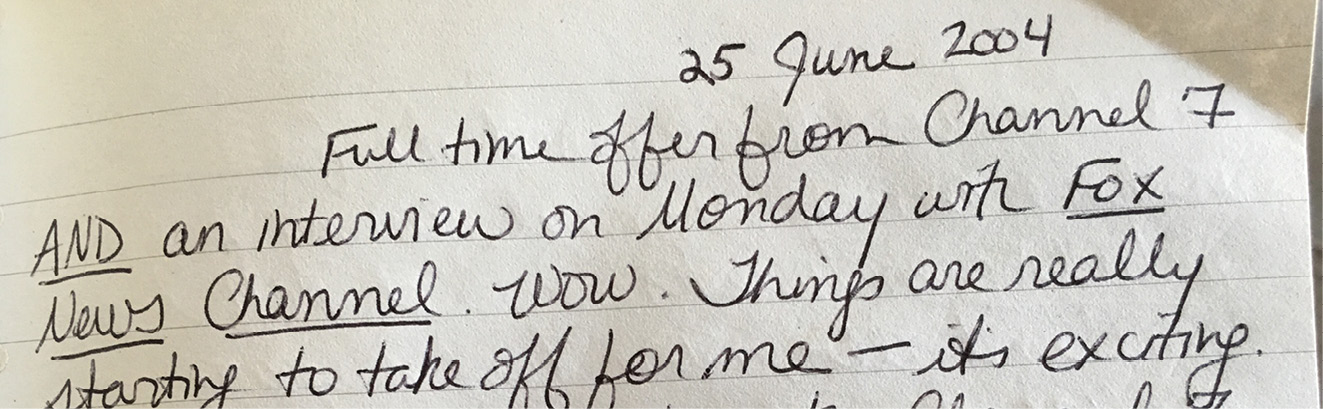 25 June 2004
Full time offer from Channel 7
AND an interview on Monday with Fox
News Channel. Wow. Things are really
starting to take off for me – it's exciting.